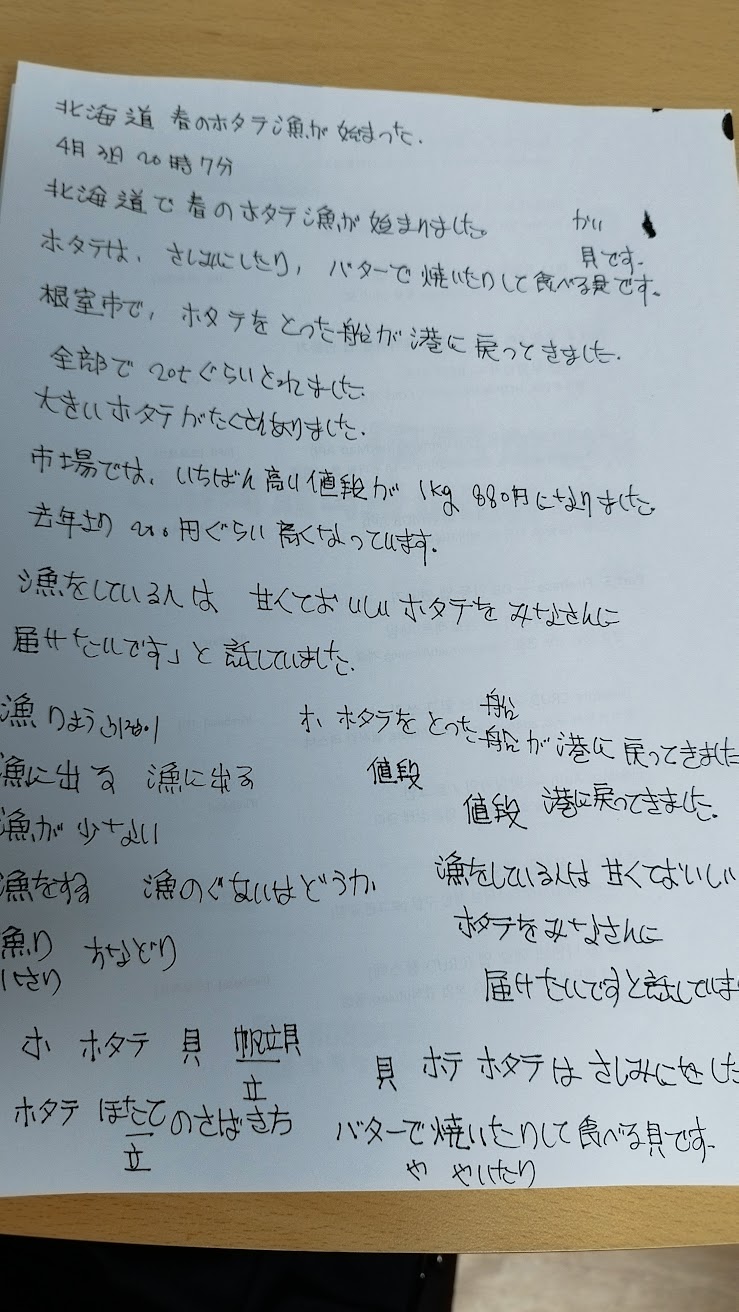 北海道 春のホタテ漁が 始まった.
4月3日 20時7分
北海道で 春のホタテ漁が 始まりました。
かい
貝です.
ホタテは、さしみにしたり, バターで焼いたりして食べる貝です。
根室市で, ホタテをとった船が港に戻ってきました.
全部で 20tぐらいとれました.
大きいホタテがたくさんありました.
市場では、いちばん高い値段が 1kg 880円になりました.
去年より 200円ぐらい高くなっています.
漁をしている人は 甘くておいしいホタテを みなさんに
届けたいです」と話していました.
漁 りょう
漁に出る 漁に出る
漁が少ない
漁をする 漁のぐあいはどうか
漁り
いさり
ホ ホタテ 貝 帆立貝
立
ホタテ ほたての
立
ホ ホタテをとった 船
船が港に戻ってきました
値段
値段 港に戻ってきました.
漁をしている人は 甘くておいしい
ホタテをみなさんに
届けたいですと話していま
貝 ホテ ホタテは さしみに した
バターで焼いたりして食べる貝です.
や やいたり